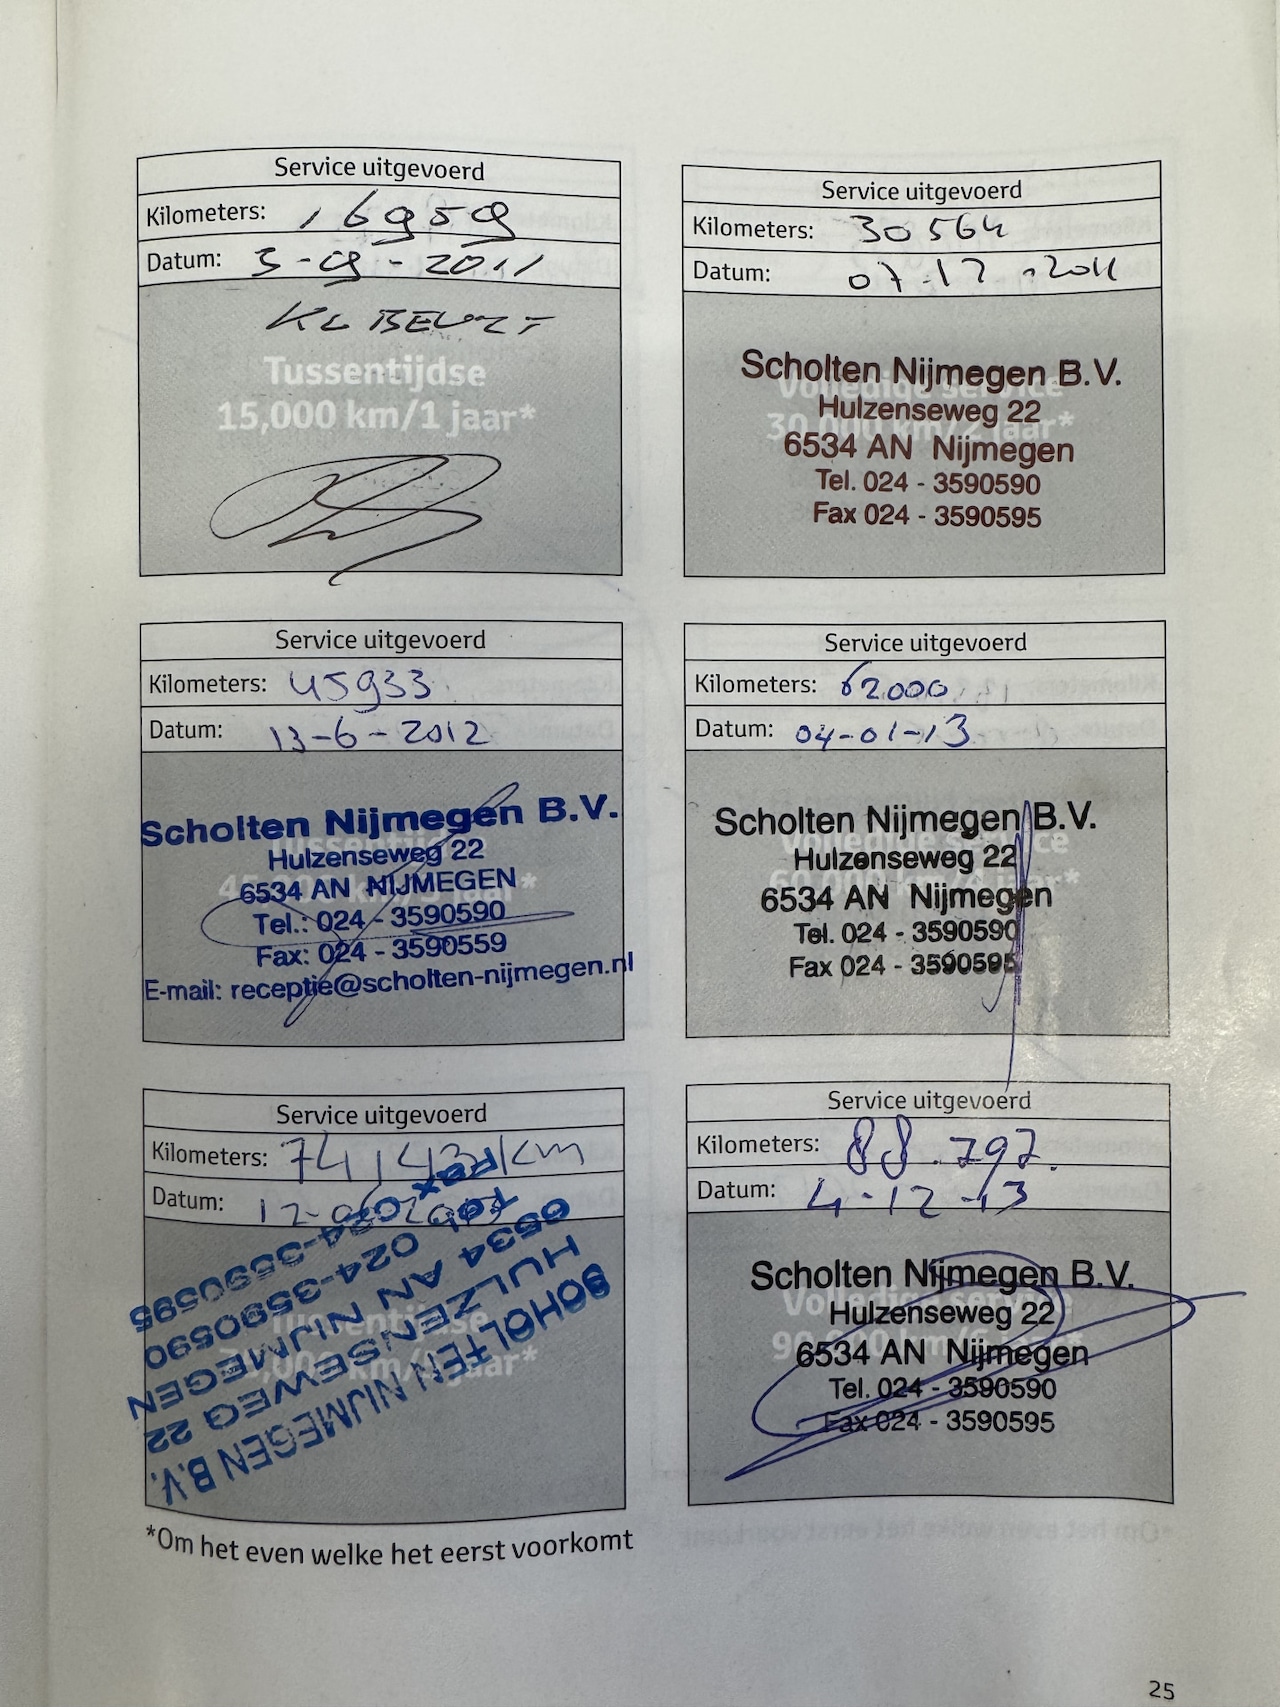 Service uitgevoerd
Kilometers: 16959
Datum: 5-09-2011
KL BEURT
Tussentijdse
15,000 km/1 jaar*
Service uitgevoerd
Kilometers: 30564
Datum: 07-12-2011
Volledige service
30,000 km/2 jaar*
Scholten Nijmegen B.V.
Hulzenseweg 22
6534 AN Nijmegen
Tel. 024 - 3590590
Fax 024 - 3590595
Service uitgevoerd
Kilometers: 45933
Datum: 13-6-2012
Tussentijdse
45,000 km/3 jaar*
Scholten Nijmegen B.V.
Hulzenseweg 22
6534 AN NIJMEGEN
Tel.: 024 - 3590590
Fax: 024 - 3590559
E-mail: receptie@scholten-nijmegen.nl
Service uitgevoerd
Kilometers: 62000
Datum: 04-01-13
Volledige service
60,000 km/4 jaar*
Scholten Nijmegen B.V.
Hulzenseweg 22
6534 AN Nijmegen
Tel. 024 - 3590590
Fax 024 - 3590595
Service uitgevoerd
Kilometers: 74,143 km
Datum: 12-06-2013
Tussentijdse
75,000 km/5 jaar*
SCHOLTEN NIJMEGEN B.V.
HULZENSEWEG 22
6534 AN NIJMEGEN
Tel. 024-3590590
Fax 024-3590595
Service uitgevoerd
Kilometers: 88.797.
Datum: 4-12-13
Volledige service
90,000 km/6 jaar*
Scholten Nijmegen B.V.
Hulzenseweg 22
6534 AN Nijmegen
Tel. 024 - 3590590
Fax 024 - 3590595
*Om het even welke het eerst voorkomt
25